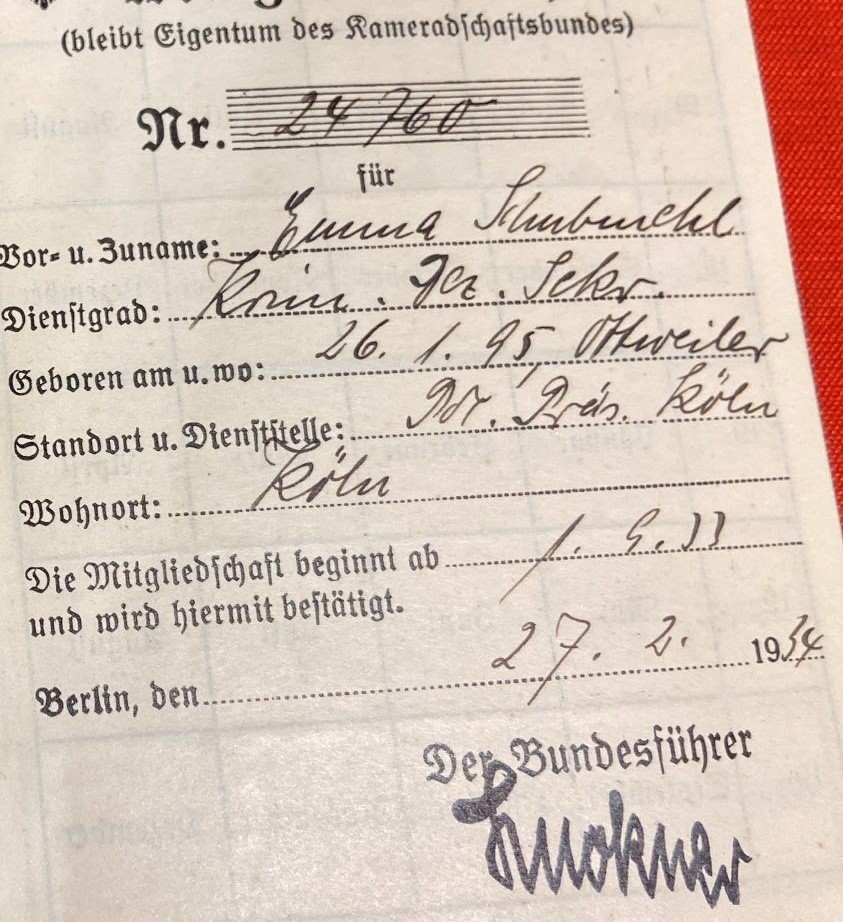 (bleibt Eigentum des Kameradschaftsbundes)
Nr. 24760
für
Vor- u. Zuname: Emma
Dienstgrad: Krim. Sekr.
Geboren am u. wo: 26. 1. 95 Ottweiler
Standort u. Dienststelle: Präs. Köln
Wohnort: Köln
Die Mitgliedschaft beginnt ab 1. 9. 33
und wird hiermit bestätigt.
Berlin, den 27. 2. 1934
Der Bundesführer